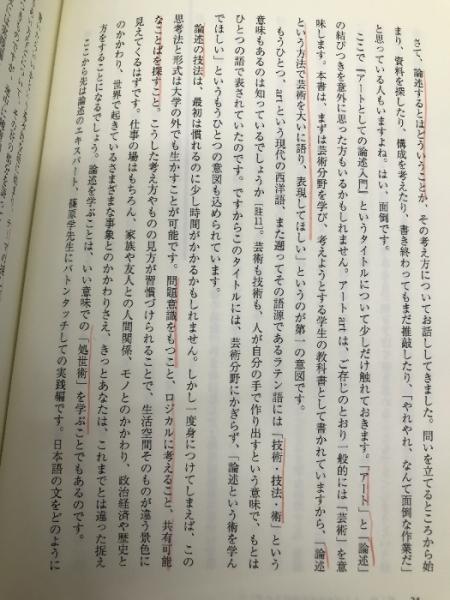 さて、論述するとはどういうことか、その考え方についてお話ししてきました。問いを立てるところから始
まり、資料を探したり、構成を考えたり、書き終わってもまだ推敲したり、「やれやれ、なんて面倒な作業だ」
と思っている人もいますよね。はい、面倒です。
ここで『アートとしての論述入門』というタイトルについて少しだけ触れておきます。「アート」と「論述」
の結びつきを意外に思った方もいるかもしれません。アート art は、ご存じのとおり一般的には「芸術」を意
味します。本書は、まずは芸術分野を学び、考えようとする学生の教科書として書かれていますから、「論述
という方法で芸術を大いに語り、表現してほしい」というのが第一の意図です。
もうひとつ、art という現代の西洋語、また遡ってその語源であるラテン語には「技術・技法・術」という
意味もあるのは知っているでしょうか[註11]。芸術も技術も、人が自分の手で作り出すという意味で、もとは
ひとつの語で表されていたのです。ですからこのタイトルには、芸術分野にかぎらず、「論述という術を学ん
でほしい」というもうひとつの意図も込められています。
論述の技法は、最初は慣れるのに少し時間がかかるかもしれません。しかし一度身につけてしまえば、この
思考法と形式は大学の外でも生かすことが可能です。問題意識をもつこと、ロジカルに考えること、共有可能
なことばを探すこと。こうした考え方やものの見方が習慣づけられることで、生活空間そのものが違う景色に
見えてくるはずです。仕事の場はもちろん、家族や友人との人間関係、モノとのかかわり、政治経済や歴史と
のかかわり、世界で起きているさまざまな事象とのかかわりさえ、きっとあなたは、これまでとは違った捉え
方をすることになるでしょう。論述を学ぶことは、いい意味での「処世術」を学ぶことでもあるのです。
ここから先は論述のエキスパート、篠原学先生にバトンタッチしての実践編です。日本語の文をどのように
24